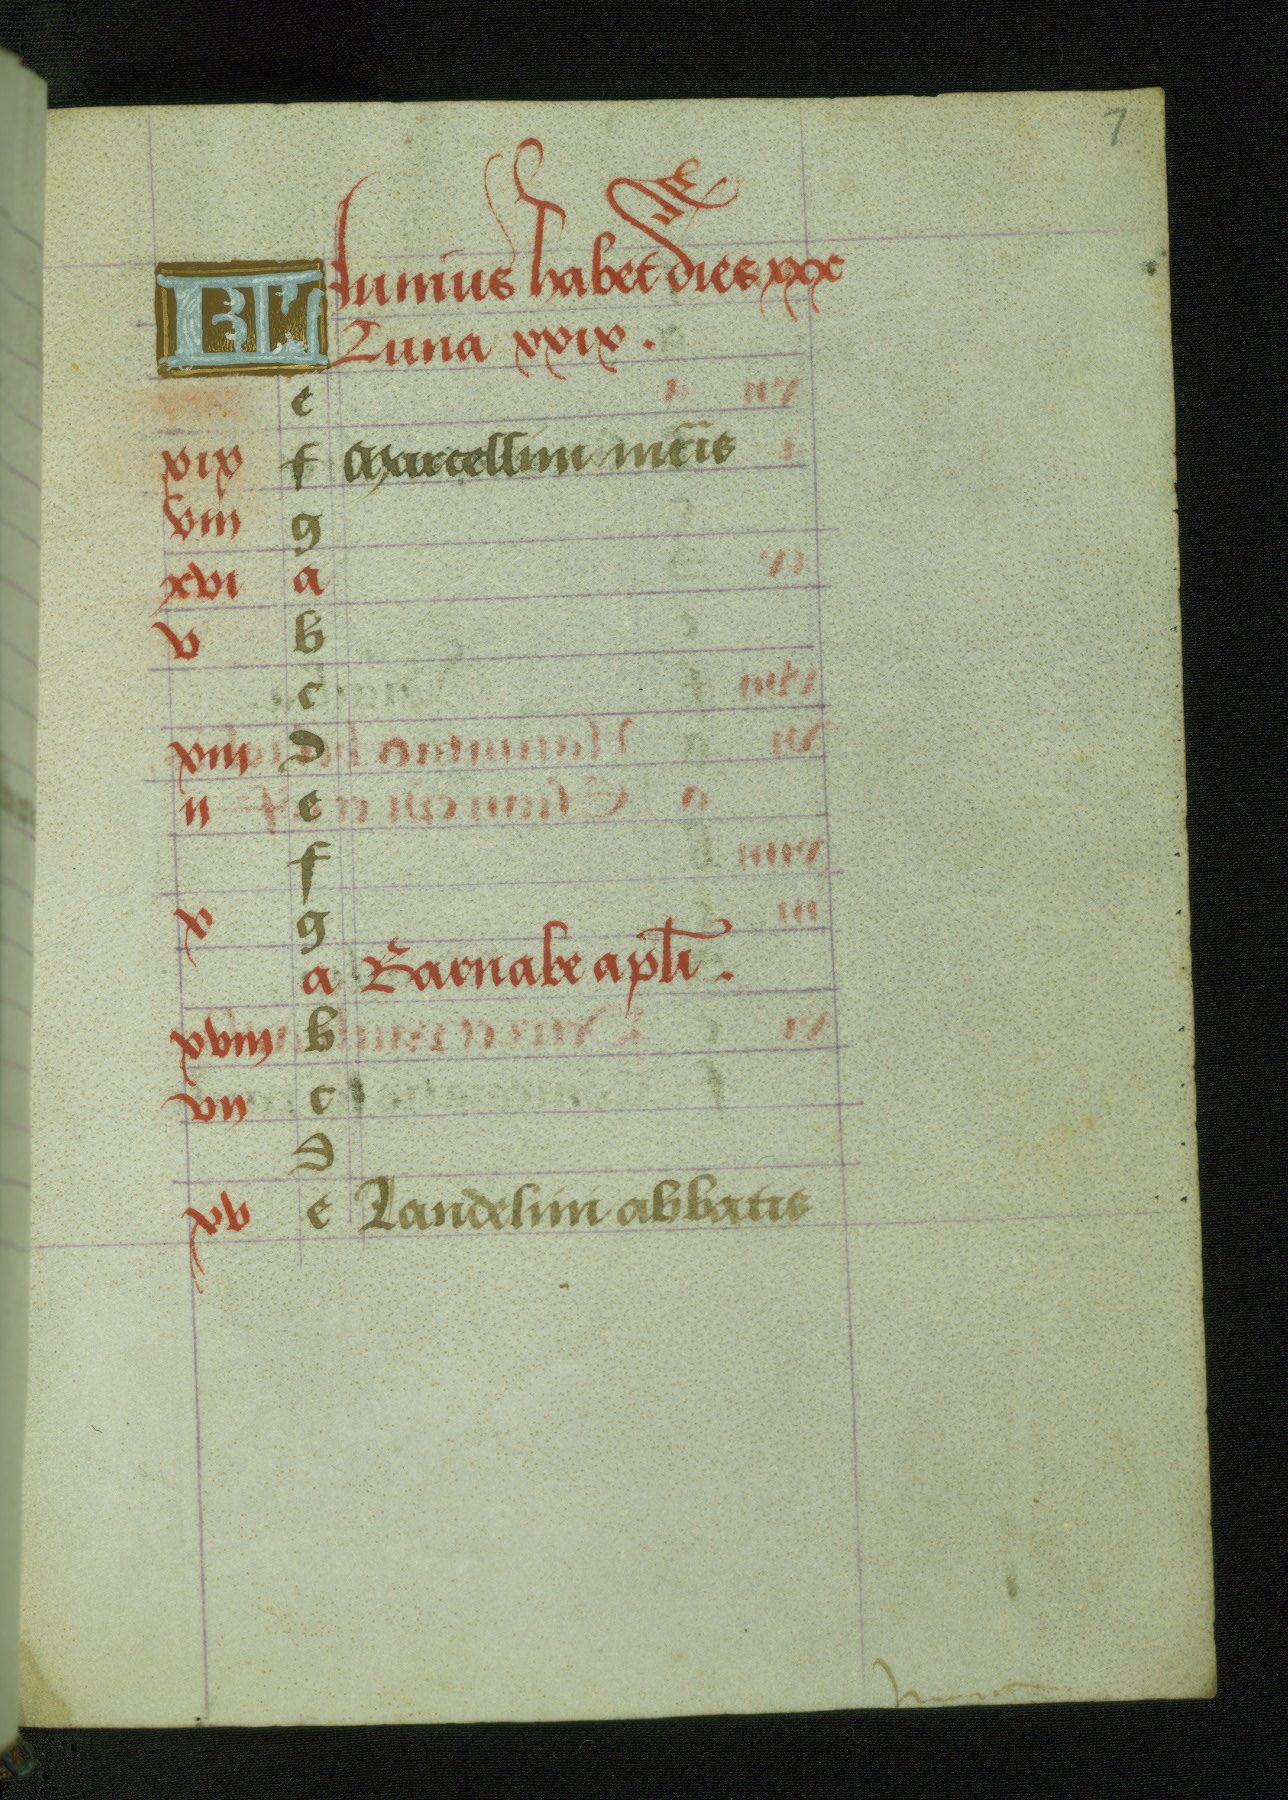 7
KL Iunius habet dies xxx
Luna xxix.
e
xix f Marcellini mr̄is
viii g
xvi a
v b
c
xiii d
ii e
f
x g
a Barnabe apl̄i.
xviii b
vii c
d
xv e Landelini abbatis